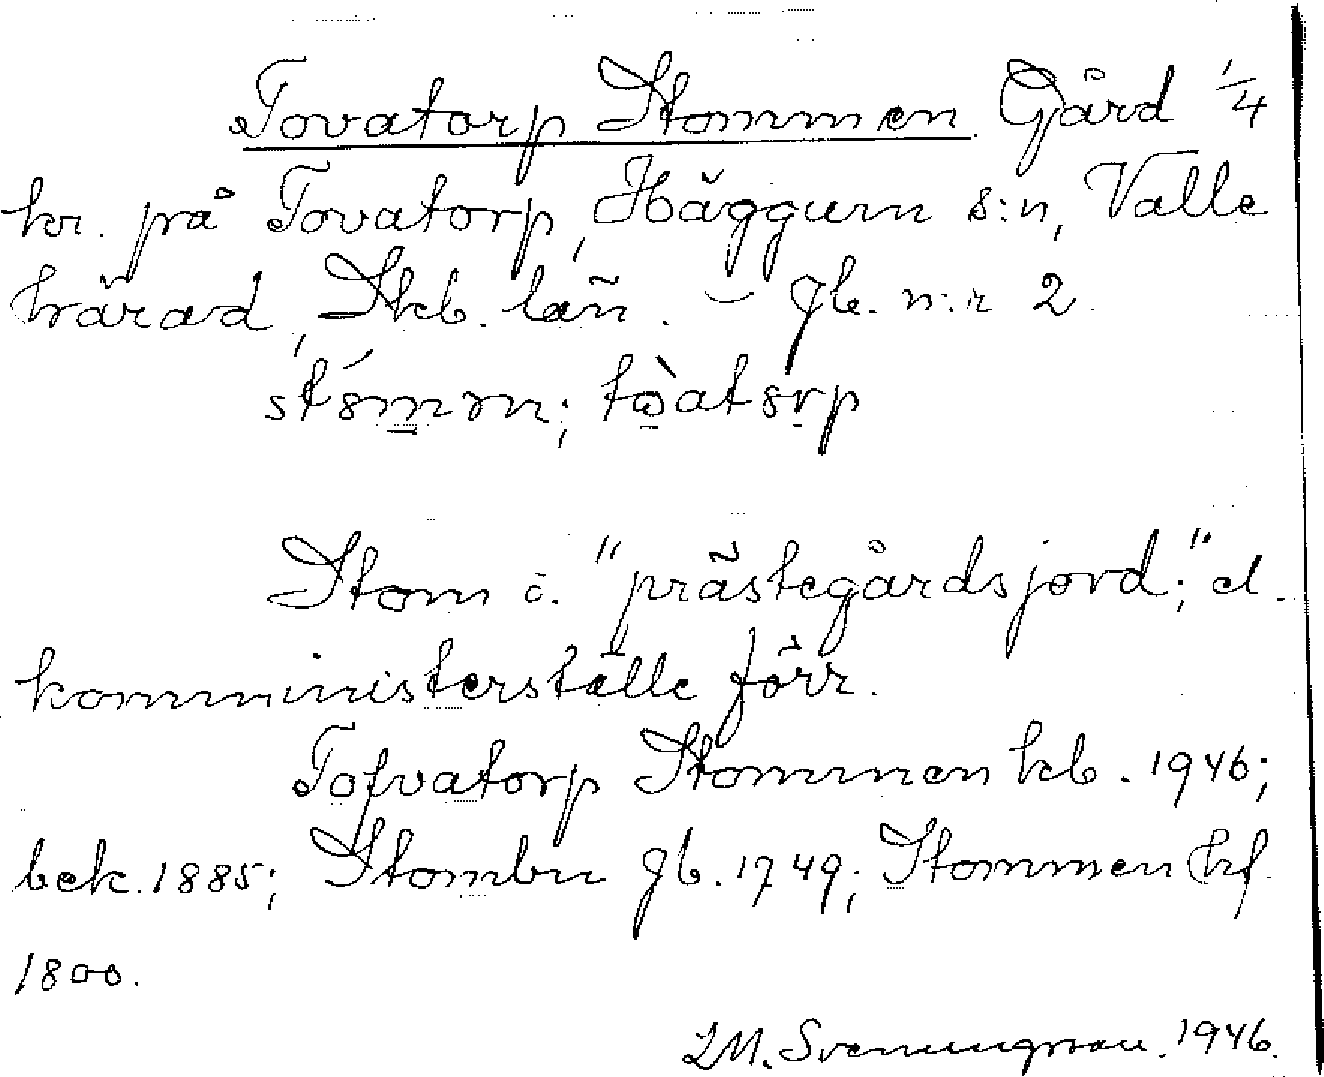 Tovatorp Stommen Gård 1/4
kr. på Tovatorp, Häggum s:n, Valle
härad, Skb. län. – gb. n:r 2
Stom ä. "prästegårdsjord;" el.
komministerställe förr.
Tofvatorp Stommen kb. 1946;
bek. 1885; Stombn gb. 1749; Stommen hf
1800.
Sveningsson. 1946.